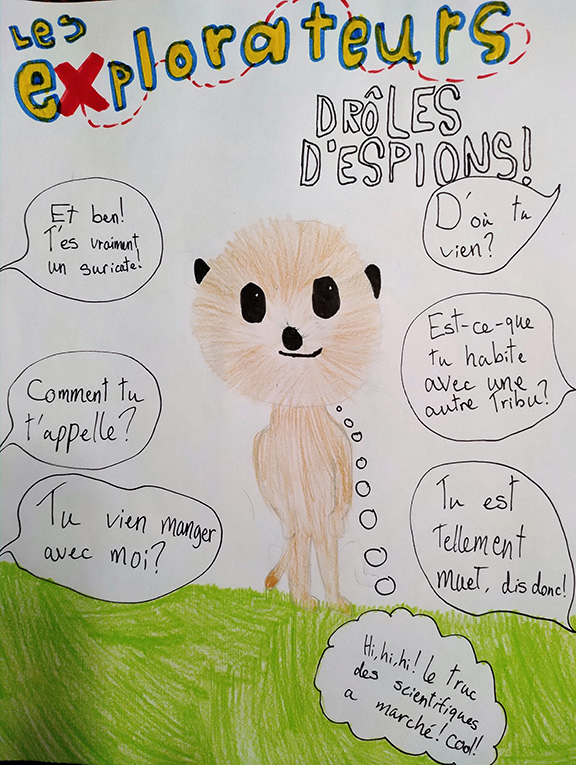 Les
explorateurs
DRÔLES
D'ESPIONS!
Et ben!
T'es vraiment
un suricate!
D'où tu
vien?
Est-ce-que
tu habite
avec une
autre Tribu?
Comment tu
t'appelle?
Tu vien manger
avec moi?
Tu est
Tellement
muet, dis donc!
Hi, hi, hi! Le truc
des scientifiques
a marché! Cool!